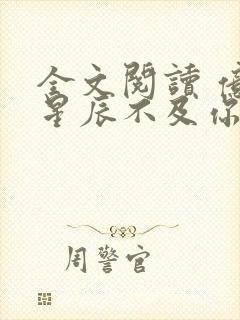 全文閱讀 億
星辰不及你
周警官